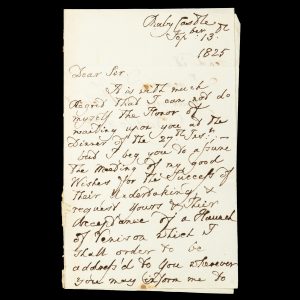 Raby Castle
Sep.ber 13.
1825
Dear Sir
It is with much
Regret that I can not do
myself the Honor of
waiting upon you at the
Dinner of the 27th Inst.
but I beg you to assure
the Meeting of my good
Wishes for the Success of
their Undertaking, &
request Yours & their
Acceptance of a Haunch
of Venison which I
shall order to be
address'd to you wherever
you may inform me to